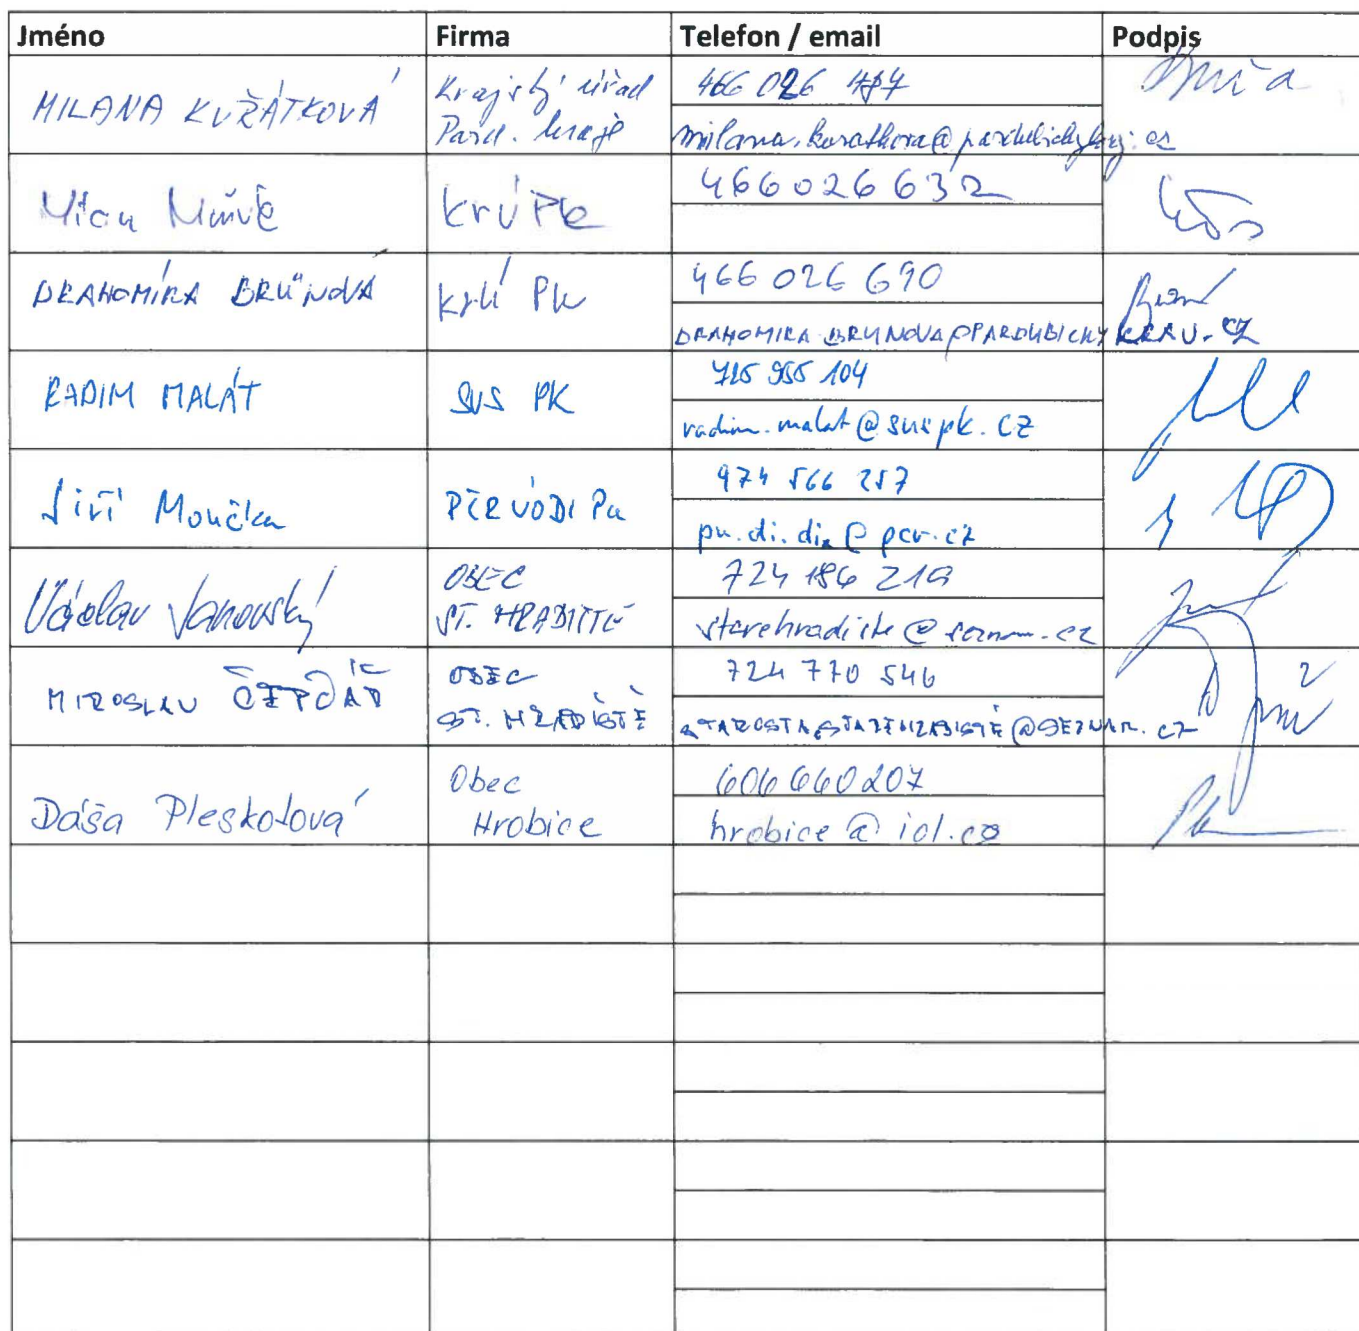 Jméno Firma Telefon / email Podpis
MILANA KUŘÁTKOVÁ Krajský úřad Pard. kraje 466 026
milana.kuratkova@pardubickykraj.cz
KrÚ Pk 466 026 632
DRAHOMÍRA BRŮNOVÁ KrÚ Pk 466 026 690
DRAHOMIRA.BRUNOVA@PARDUBICKYKRAJ.CZ
RADIM MALÁT SUS PK 725 955 104
radim.malat@suspk.cz
Jiří Moučka PČR ÚO DI Pu 974 566 257
pu.di.di@pcr.cz
Václav Janovský OBEC ST. HRADIŠTĚ 724 186 219
starehradiste@seznam.cz
MIROSLAV OBEC ST. HRADIŠTĚ 724 770 546
STAROSTA.STAREHRADISTE@SEZNAM.CZ
Dáša Pleskotová Obec Hrobice 606 660 207
hrobice@iol.cz